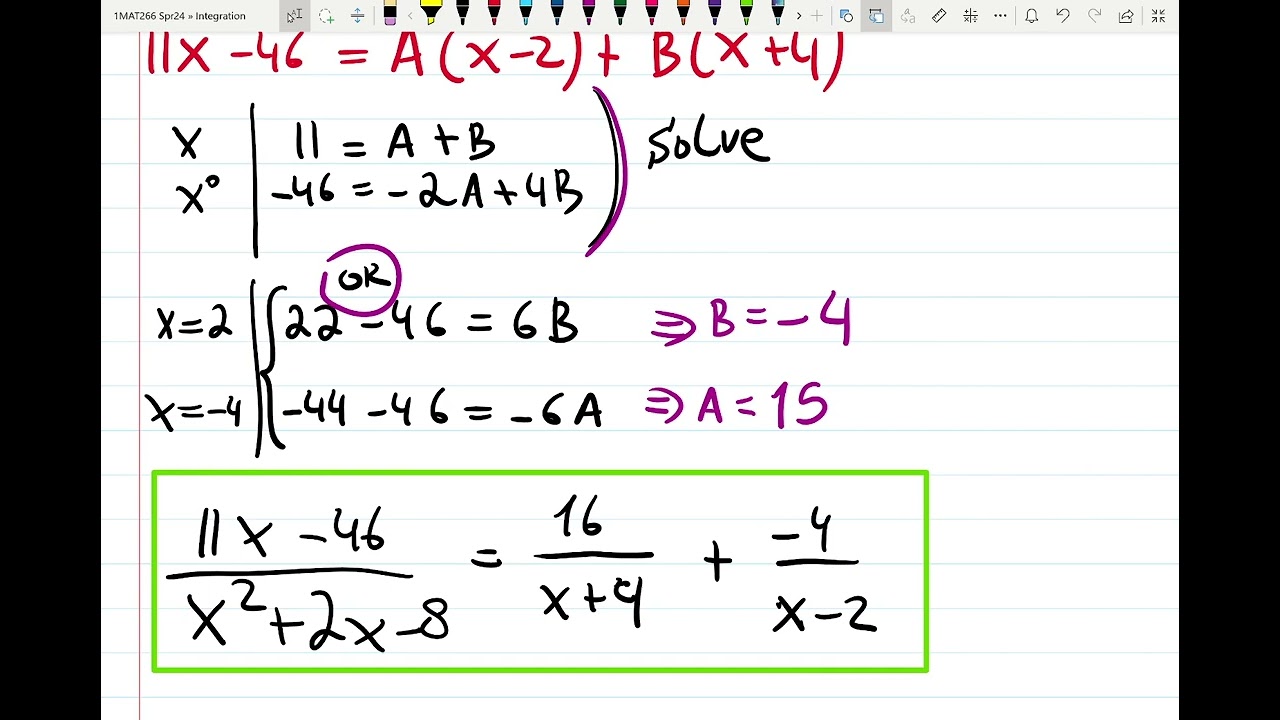 1MAT266 Spr24 » Integration
11x - 46 = A(x-2) + B(x+4)
x | 11 = A + B ) solve
x⁰ | -46 = -2A + 4B
OR
x=2 | { 22 - 46 = 6B ⇒ B = -4
x=-4 | { -44 - 46 = -6A ⇒ A = 15
11x - 46 / x²+2x-8 = 16 / x+4 + -4 / x-2